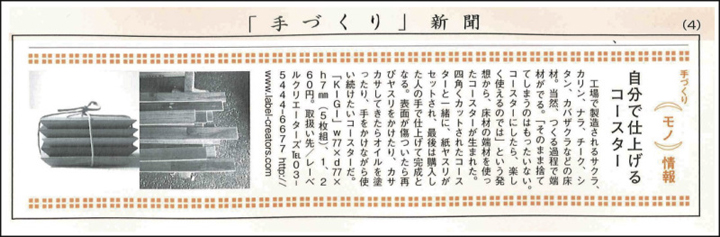 「手づくり」新聞
(4)
手づくり
《モノ》情報
自分で仕上げる
コースター
工場で製造されるサクラ、
カリン、ナラ、チーク、シ
タン、カバザクラなどの床
材。当然、つくる過程で端
材がでる。「そのまま捨て
てしまうのはもったいない。
コースターにしたら、楽し
く使えるのでは」という発
想から、床材の端材を使っ
たコースターが生まれた。
四角くカットされたコース
ターと一緒に、紙ヤスリが
セットされ、最後は購入し
た人の手で仕上げて完成と
なる。表面が傷ついたら再
びヤスリをかけたり、カサ
カサしてきたらオイルを塗
ったり、手をかけながら使
い続けたいコースターだ。
「KIGI」w77×d77×
h7㎜(5枚組)、1、2
60円。取扱い先/レーベ
ルクリエーターズ℡03-
5444-6677 http://
www.label-creators.com